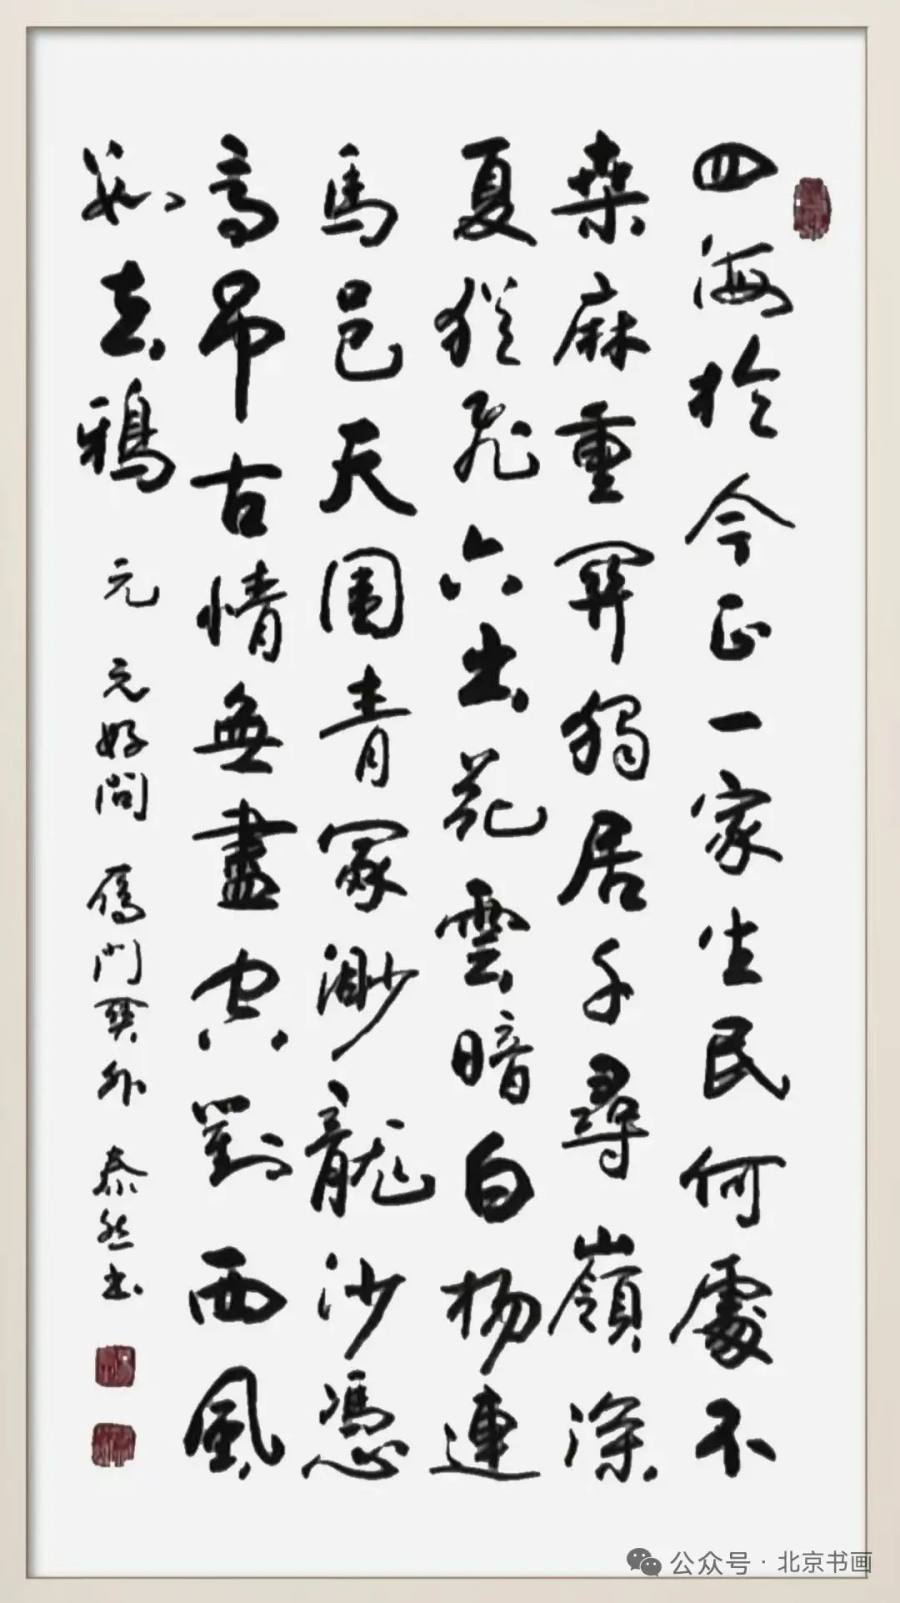 四海於今正一家生民何處不
桑麻重關獨居千尋嶺深
夏猶飛六出花雲暗白楊連
馬邑天圍青冢渺龍沙憑
高吊古情無盡空對西風
數去鴉
元 元好問 雁門關外 泰然书
公众号·北京书画